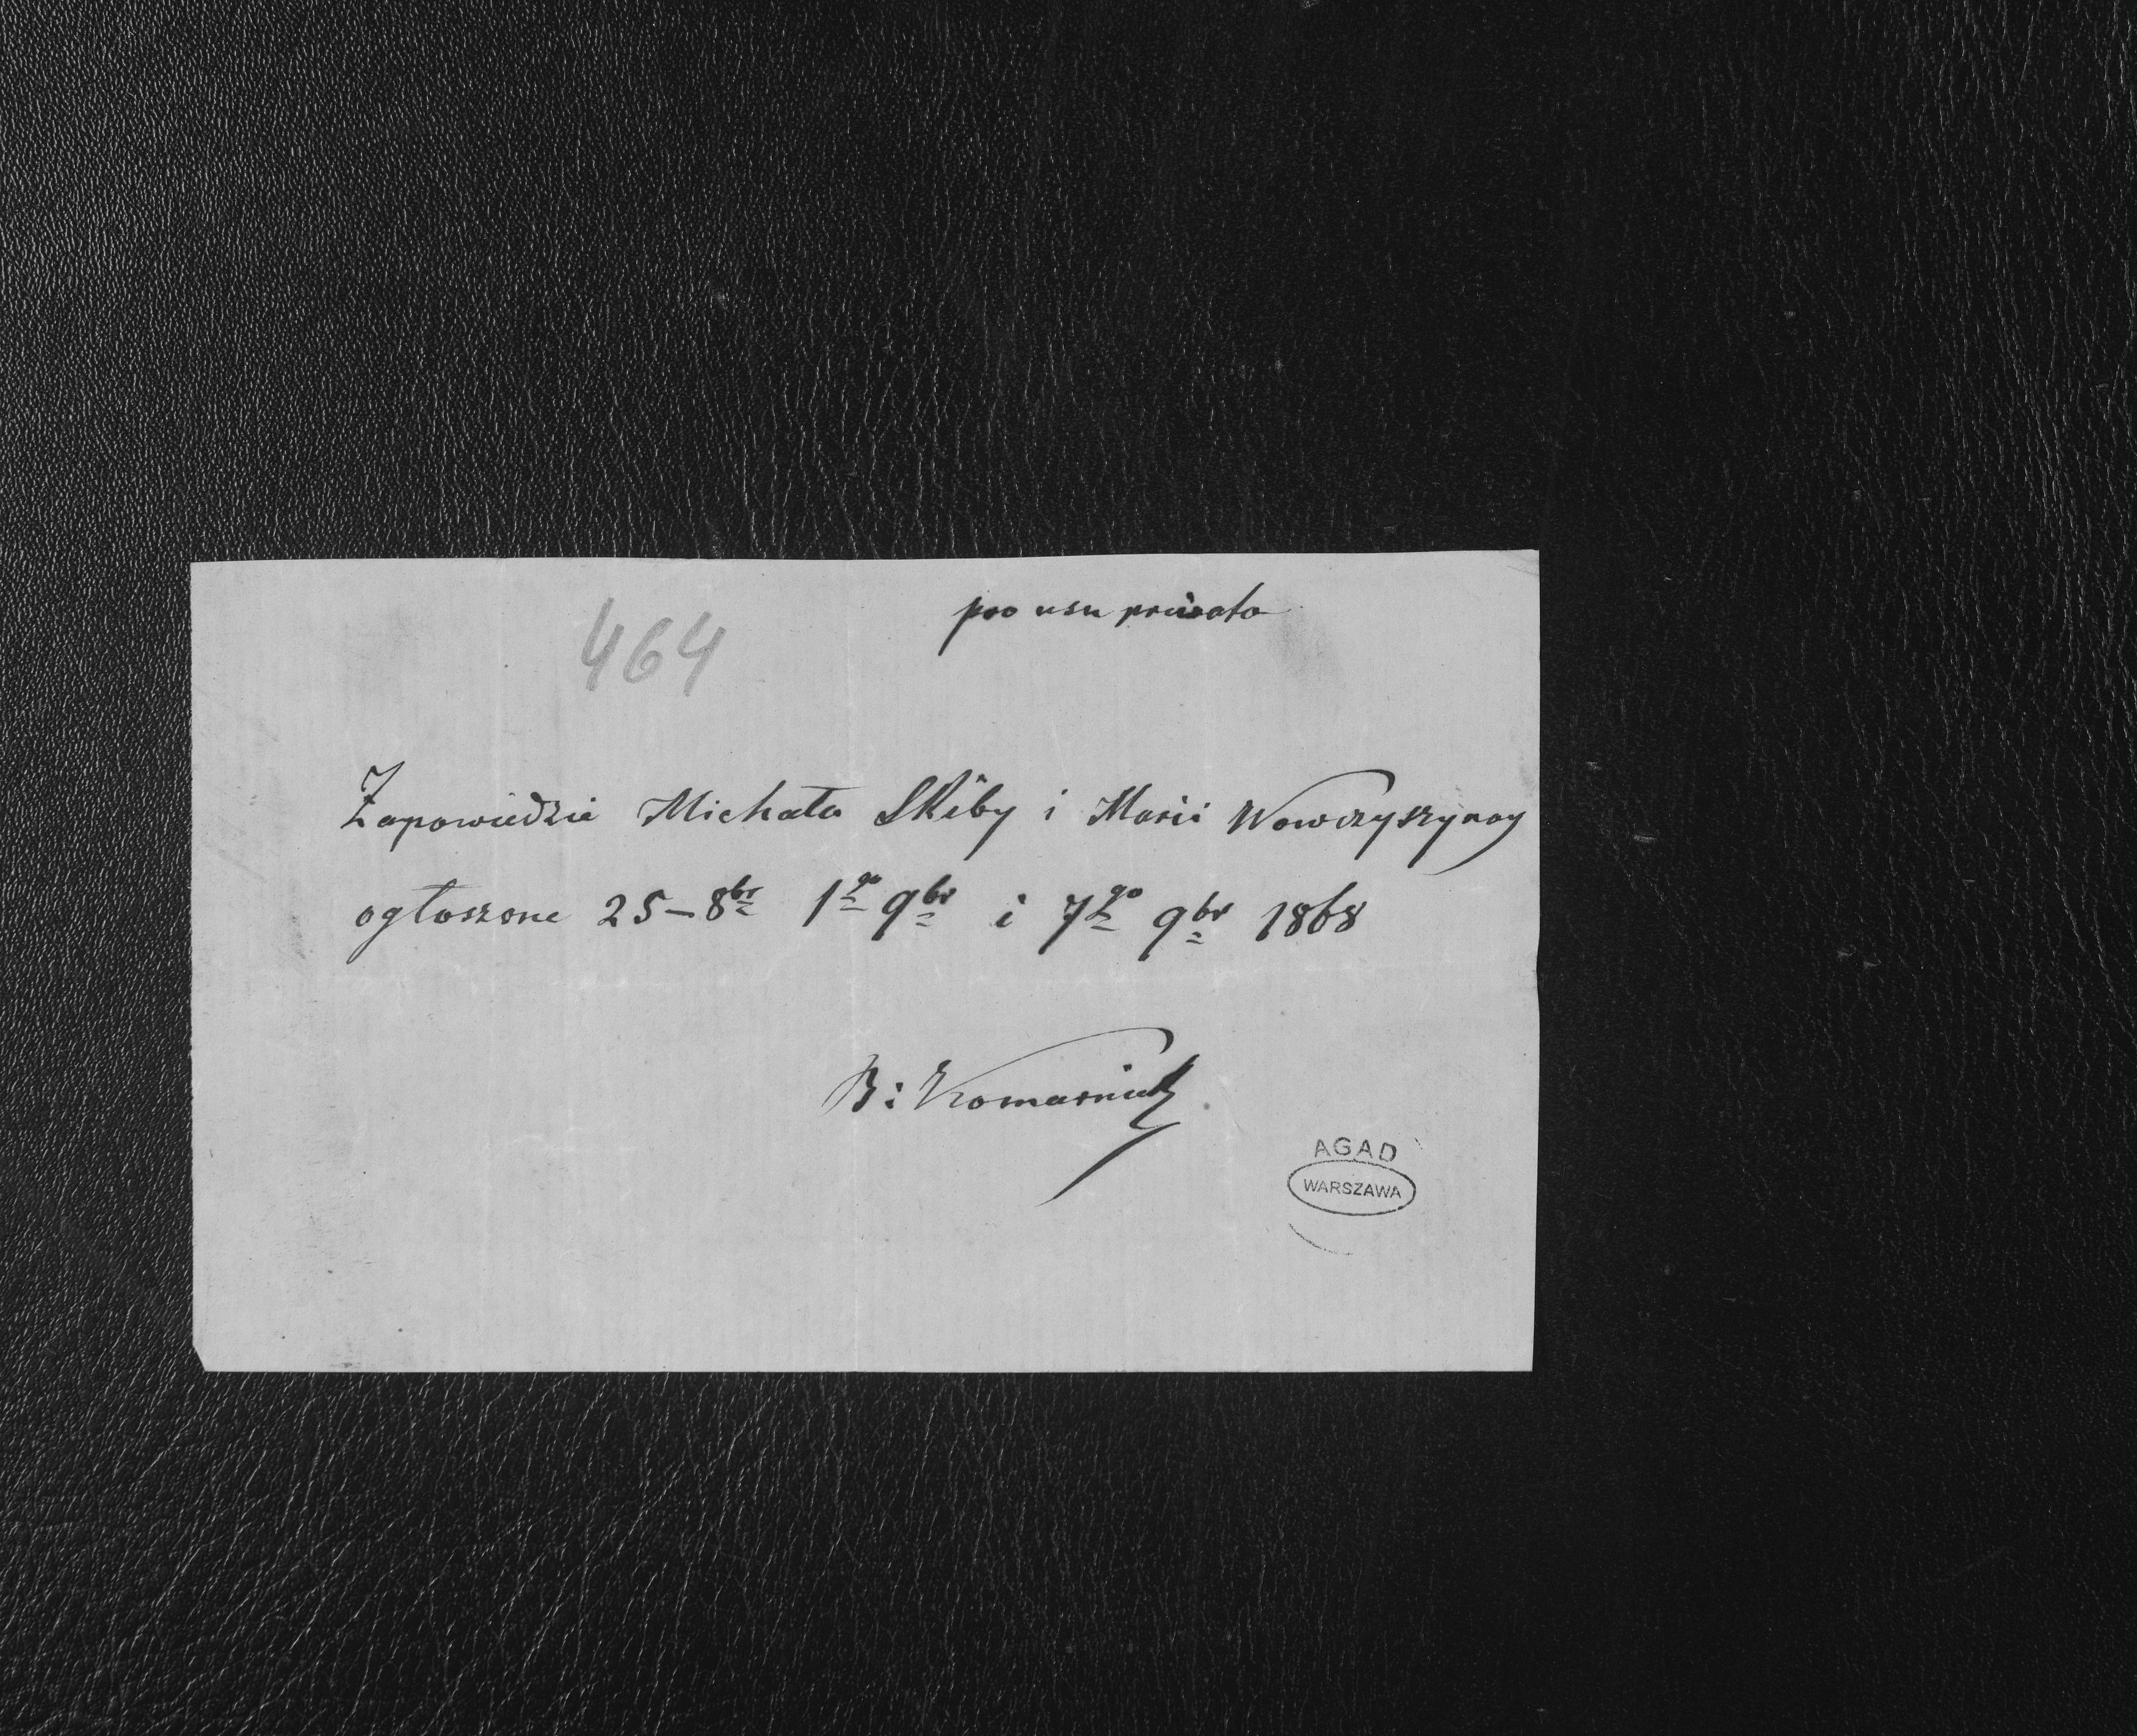 pro usu privato
464
Zapowiedzie Michała Skiby i Marii Wowczyszynoy
ogłoszone 25–8br 1go 9br i 7go 9br 1868
B: Komarnicki
AGAD
WARSZAWA